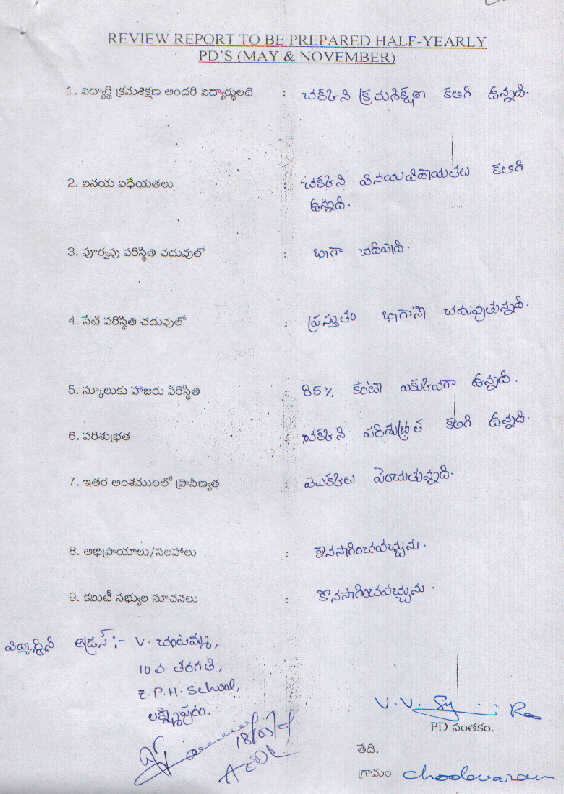 REVIEW REPORT TO BE PREPARED HALF-YEARLY
PD'S (MAY & NOVEMBER)
1. విద్యార్థి క్రమశిక్షణ అందరి విద్యార్థులది : చక్కని క్రమశిక్షణ కలిగి ఉన్నది.
2. వినయ విధేయతలు : చక్కని వినయవిధేయతలు కలిగి
ఉన్నది.
3. పూర్వపు పరిస్థితి చదువులో : బాగా చదివేది.
4. నేటి పరిస్థితి చదువులో : ప్రస్తుతం బాగానే చదువుతున్నది.
5. స్కూలుకు హాజరు పరిస్థితి : 85% కంటె ఎక్కువగా ఉన్నది.
6. పరిశుభ్రత : చక్కని పరిశుభ్రత కలిగి ఉన్నది.
7. ఇతర అంశములలో ప్రావీణ్యత : మొక్కలు పెంచుతున్నది.
8. అభిప్రాయాలు/సలహాలు : కొనసాగించవచ్చును.
9. కమిటీ సభ్యుల సూచనలు : కొనసాగించవచ్చును.
విద్యార్థిని అడ్రస్ :- V.
10వ తరగతి,
Z.P.H. School,
లక్ష్మీపురం.
18/03/
V.V.
PD సంతకం.
తేది.
గ్రామం Choodavaram